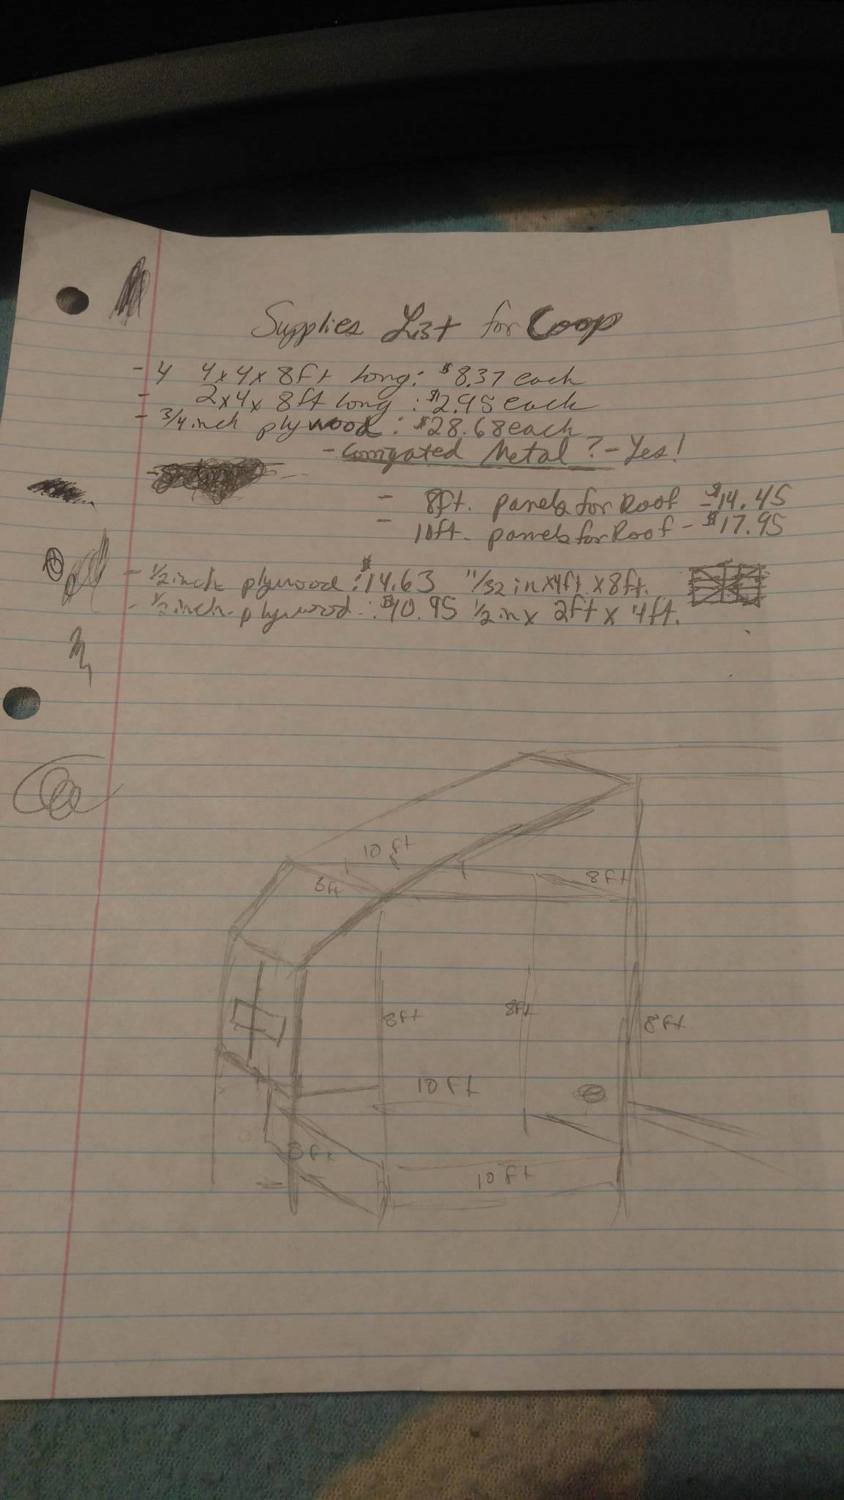 Supplies List for Coop
- 4 4x4x8ft long: $8.37 each
- 2x4x8ft long: $2.95 each
- 3/4 inch plywood: $28.68 each
- Corrigated Metal? - Yes!
- 8ft. panels for Roof - $14.45
- 10ft. panels for Roof - $17.95
- 1/2 inch plywood: $14.63 11/32 in x4ft x8ft.
- 1/2 inch plywood: $10.95 1/2 in x 2ft x 4ft.
10 ft
8ft
8ft
8ft
8ft
8ft
10 ft
8ft
10 ft